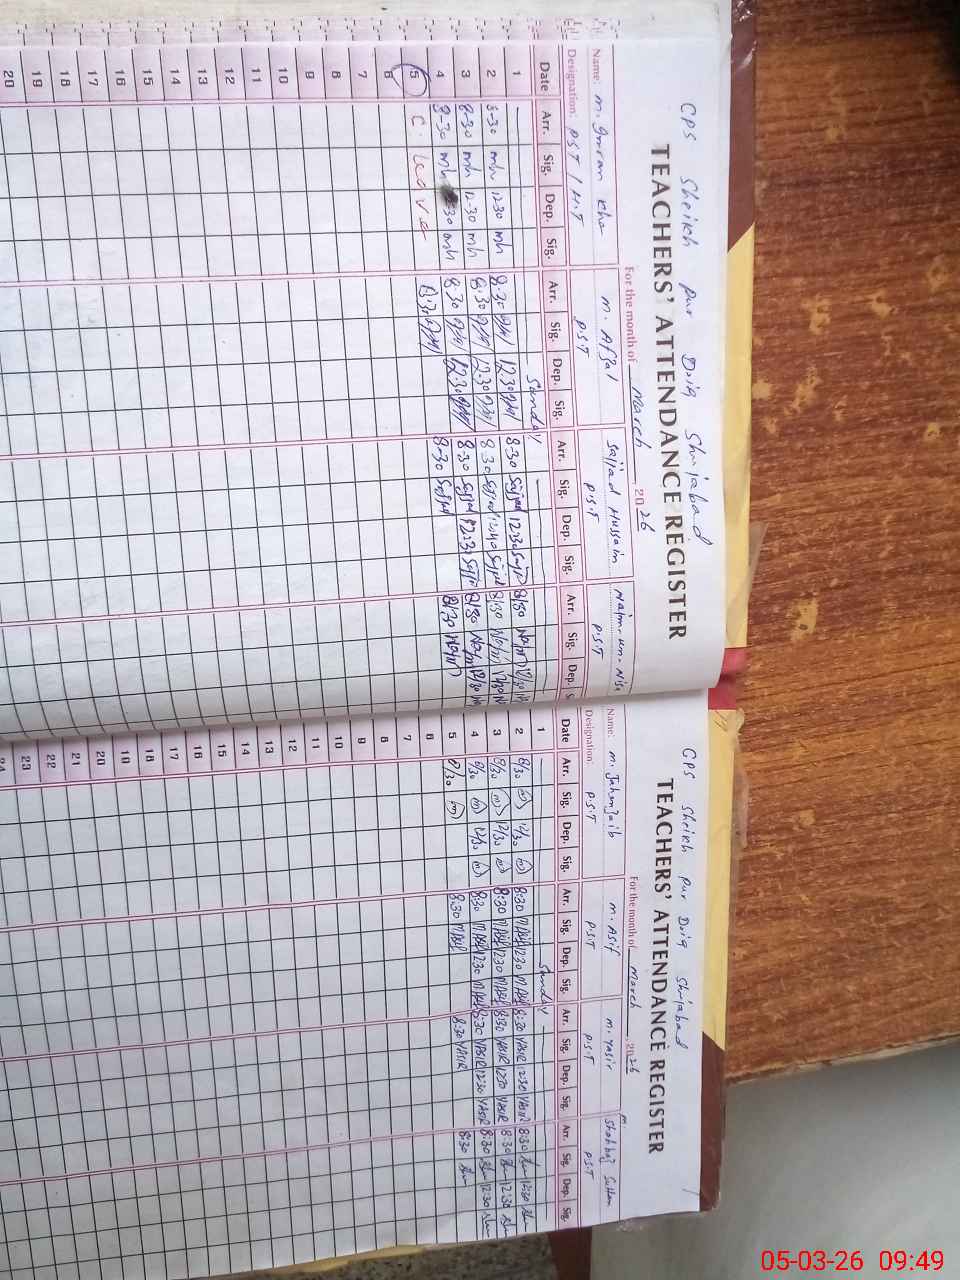 GPS Sheikh Pur Doiq Shujabad
TEACHERS' ATTENDANCE REGISTER
For the month of March 2026
Name: M. Imran Khan
M. Afzal
Sajjad Hussain
Naim-un-Nisa
Designation: P.S.T / H.T
P.S.T
P.S.T
P.S.T
Date Arr. Sig. Dep. Sig. Arr. Sig. Dep. Sig. Arr. Sig. Dep. Sig. Arr. Sig. Dep. S
1 Sunday
2 8-30 mh 12-30 mh 8.30 12.30 8-30 Sajjad 12-30 Sajjad 8/30 Najm 12/30
3 8-30 mh 12-30 mh 8.30 12.30 8-30 Sajjad 12-40 Sajjad 8/30 Najm 12/30
4 8-30 mh 12-30 mh 8.30 12.30 8-30 Sajjad 12-30 Sajjad 8/30 Najm 12/30
5 C. Leave 8.30 8-30 Sajjad 8/30 Najm
6
7
8
9
10
11
12
13
14
15
16
17
18
19
20
GPS Sheikh Pur Doiq Shujabad
TEACHERS' ATTENDANCE REGISTER
For the month of March, 2026
Name: M. Jahanzaib
M. Asif
M. Yasir
M. Shahbaz Sultan
Designation: P.S.T
P.S.T
P.S.T
P.S.T
Date Arr. Sig. Dep. Sig. Arr. Sig. Dep. Sig. Arr. Sig. Dep. Sig. Arr. Sig. Dep. Sig.
1 Sunday
2 8/30 12/30 8:30 MAsif 12:30 MAsif 8:30 YASIR 12:30 YASIR 8:30 12:30
3 8/30 12/30 8:30 MAsif 12:30 MAsif 8:30 YASIR 12:30 YASIR 8:30 12:30
4 8/30 12/30 8:30 MAsif 12:30 MAsif 8:30 YASIR 12:30 YASIR 8:30 12:30
5 8/30 8:30 MAsif 8:30 YASIR 8:30
6
7
8
9
10
11
12
13
14
15
16
17
18
19
20
21
22
23
24
05-03-26 09:49